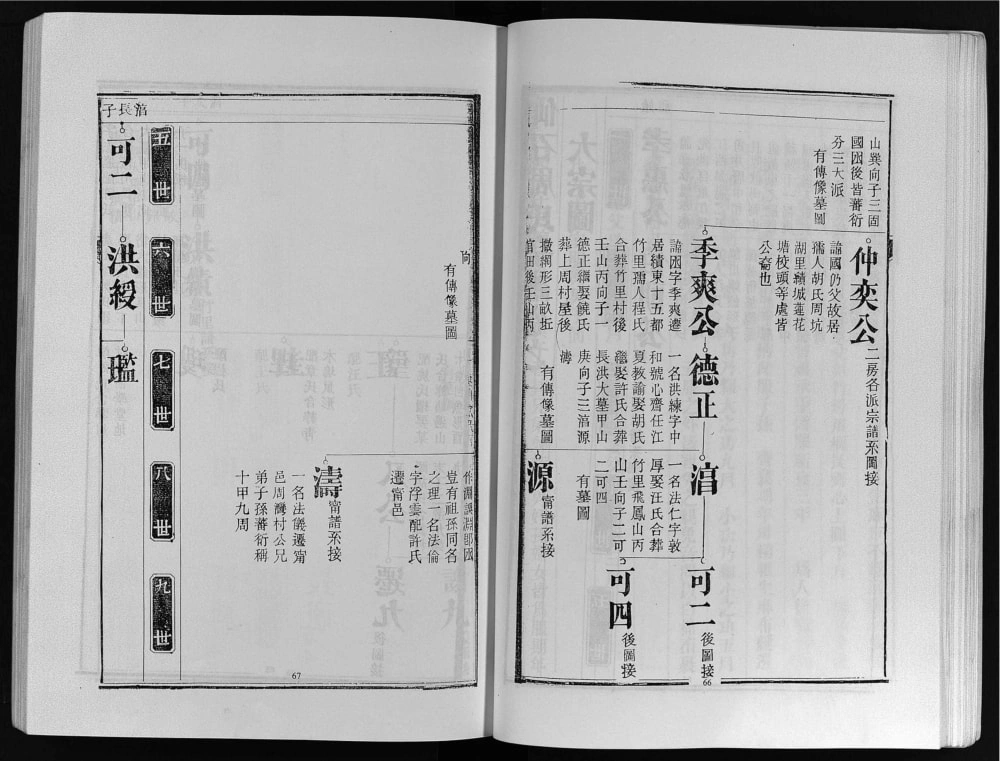 山巽向子三固
國囦後皆蕃衍
分三大派
有傳像墓圖
仲奕公
二房各派宗譜系圖接
諱國仍父故居
孺人胡氏周坑
湖里績城蓮花
塘校頭等處皆
公裔也
季爽公
諱囦字季爽遷
居積東十五都
竹里孺人程氏
合葬竹里村後
壬山丙向子一
德正
一名洪練字中
和號心齋任江
夏教諭娶胡氏
繼娶許氏合葬
長洪大墓甲山
庚向子三涫源
濤
有傳像墓圖
德正繼娶饒氏
葬上周村屋後
撒網形三畝坵
涫
一名法仁字敦
厚娶汪氏合葬
竹里飛鳳山丙
山壬向子二可
二可四
有墓圖
可二
後圖接
可四
後圖接
源
甯譜系接
66
向
有傳像墓圖
豈有祖孫同名
之理一名法倫
字浮雲配許氏
遷甯邑
濤
甯譜系接
一名法儀遷甯
邑周灣村公兄
弟子孫蕃衍稱
十甲九周
五世
六世
七世
八世
九世
涫長子
可二
洪綬
瓛
67